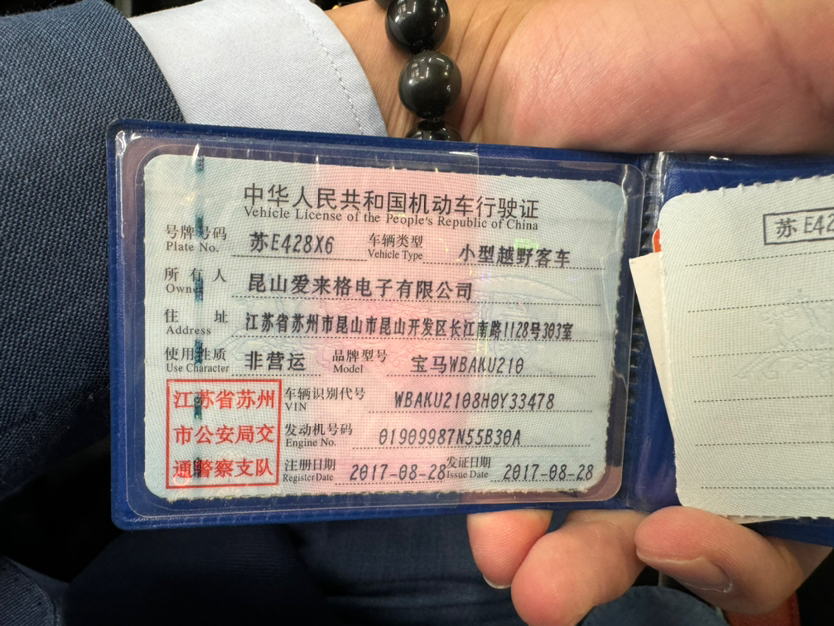 中华人民共和国机动车行驶证
Vehicle License of the People's Republic of China
号牌号码 苏E428X6 车辆类型 小型越野客车
Plate No. Vehicle Type
所有人 昆山爱来格电子有限公司
Owner
住址 江苏省苏州市昆山市昆山开发区长江南路1128号303室
Address
使用性质 非营运 品牌型号 宝马WBAKU210
Use Character Model
江苏省苏州
市公安局交
通警察支队
车辆识别代号 WBAKU2108H0Y33478
VIN
发动机号码 01909987N55B30A
Engine No.
注册日期 2017-08-28 发证日期 2017-08-28
Register Date Issue Date
苏E42